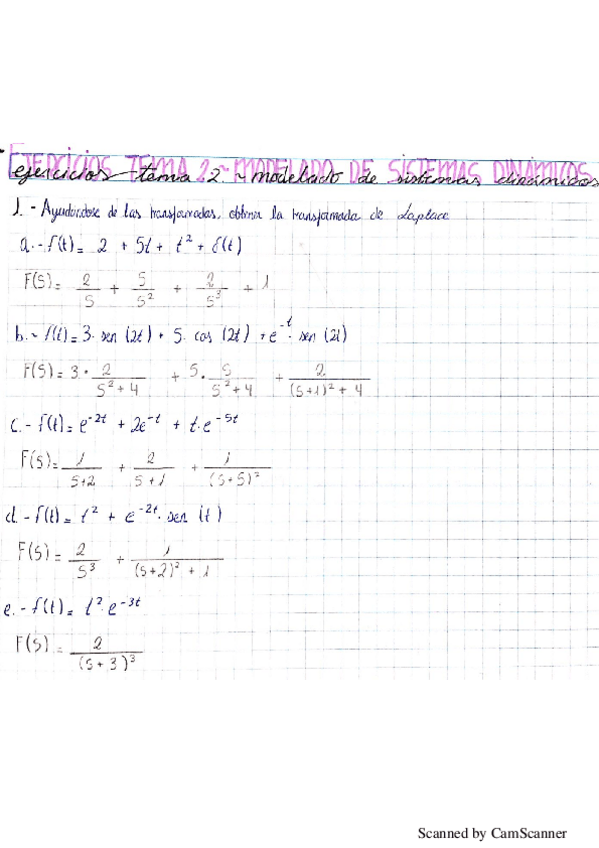 EJERCICIOS TEMA 2.2 - MODELADO DE SISTEMAS DINÁMICOS
ejercicios tema 2.2 - modelado de sistemas dinámicos
1.- Ayudandose de las transformadas, obtener la transformada de Laplace
a.- f(t) = 2 + 5t + t² + δ(t)
F(S) = 2/S + 5/S² + 2/S³ + 1
b.- f(t) = 3 · sen (2t) + 5 · cos (2t) + e^-t · sen (2t)
F(S) = 3 · 2/(S²+4) + 5 · S/(S²+4) + 2/((S+1)²+4)
c.- f(t) = e^-2t + 2e^-t + t·e^-5t
F(S) = 1/(S+2) + 2/(S+1) + 1/(S+5)²
d.- f(t) = t² + e^-2t · sen (t)
F(S) = 2/S³ + 1/((S+2)²+1)
e.- f(t) = t²·e^-3t
F(S) = 2/(S+3)³
Scanned by CamScanner